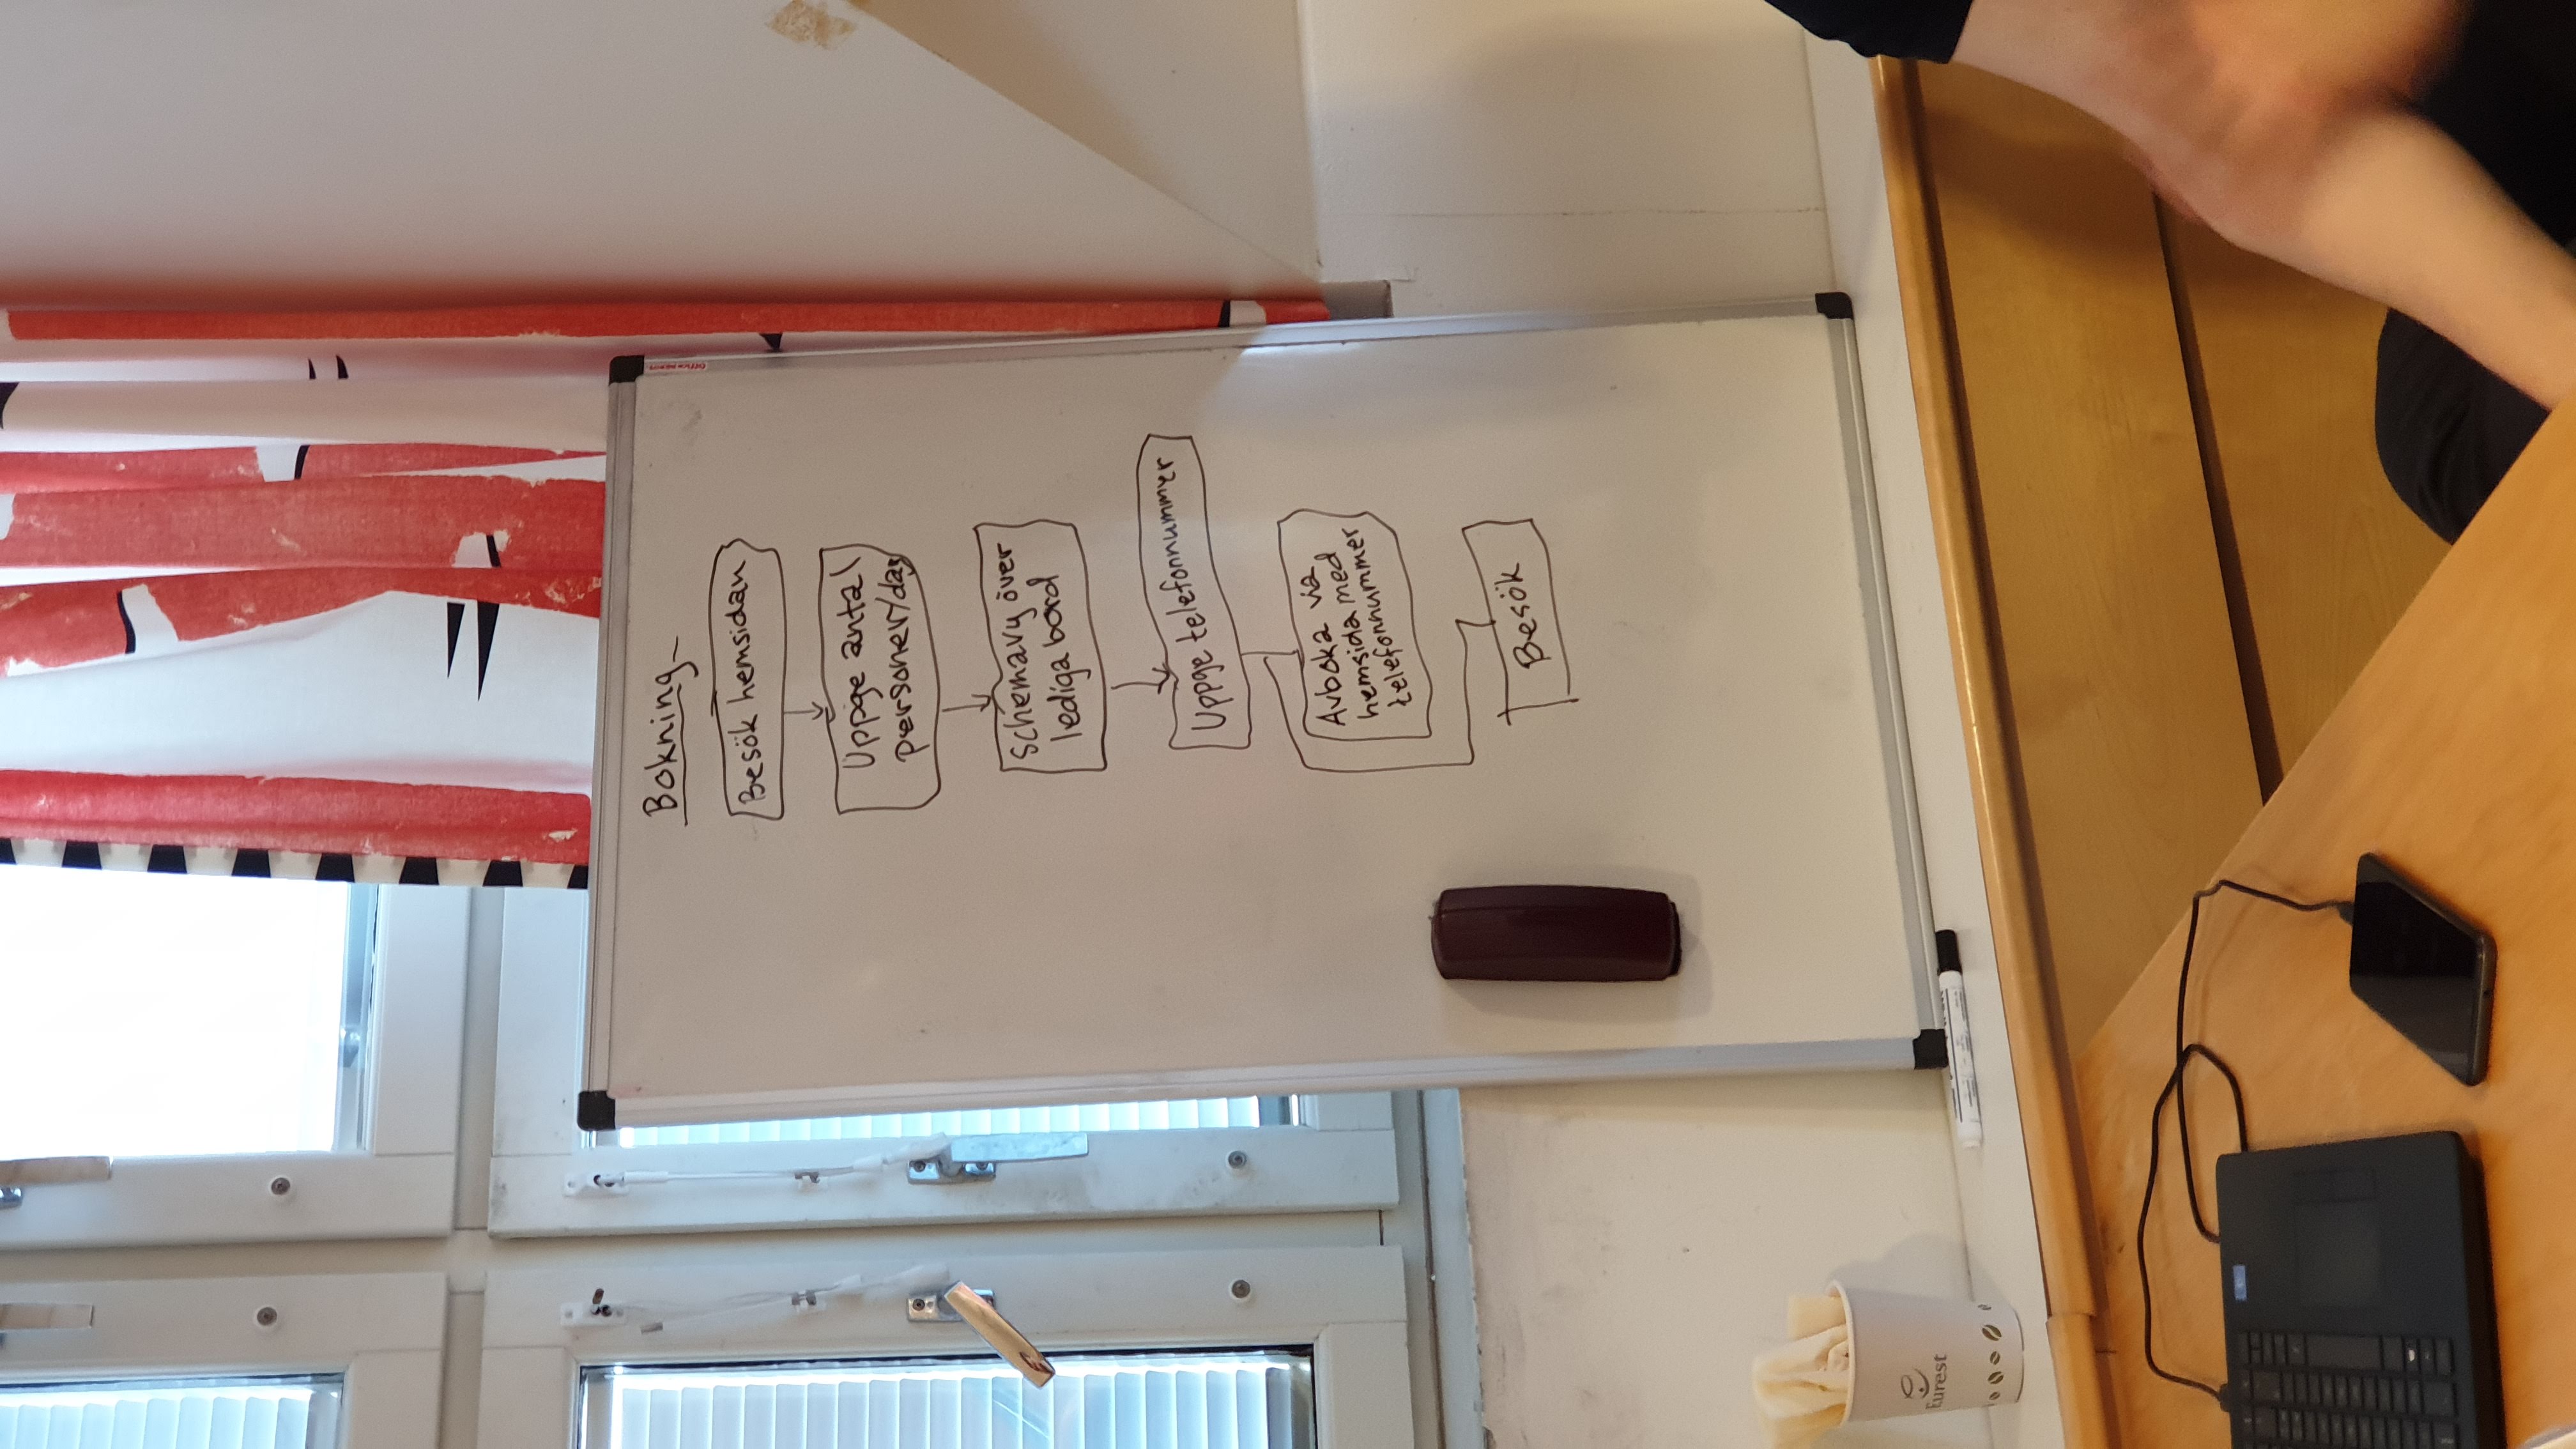 Bokning
Besök hemsidan
Uppge antal
personer/dag
Schemavy över
lediga bord
Uppge telefonnummer
Avboka via
hemsida med
telefonnummer
Besök
Eurest